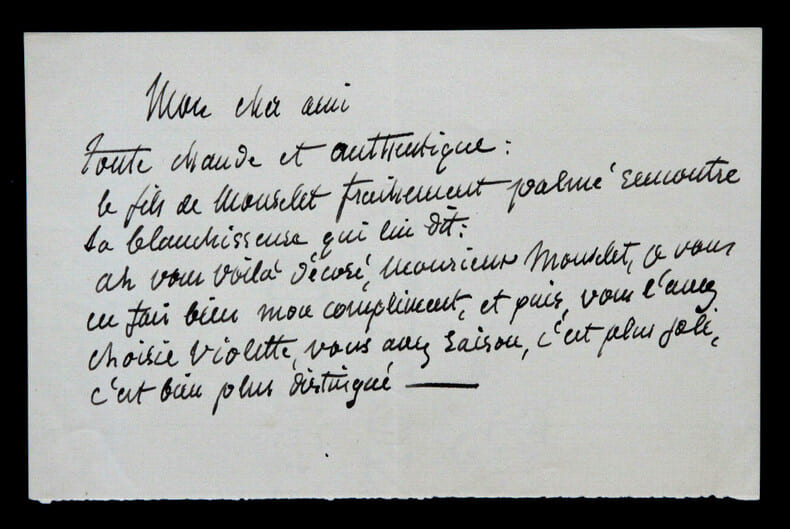 Mon cher ami
Toute chaude et authentique :
le fils de Monselet fraîchement palmé rencontre
sa blanchisseuse qui lui dit :
ah vous voilà décoré, Monsieur Monselet, je vous
en fais bien mon compliment, et puis, vous l'avez
choisie violette, vous avez raison, c'est plus joli,
c'est bien plus distingué —